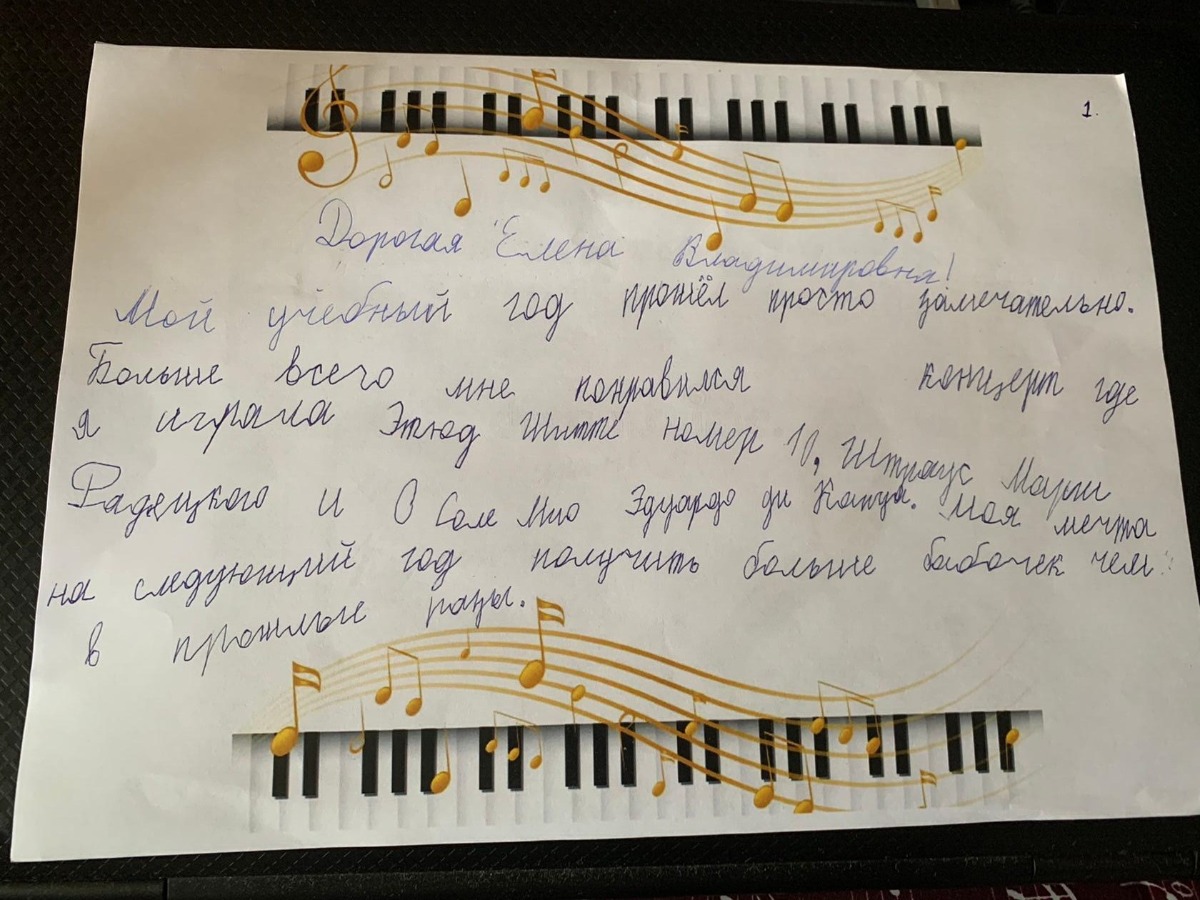 1.
Дорогая Елена Владимировна!
Мой учебный год прошёл просто замечательно.
Больше всего мне понравился концерт где
я играла Этюд Шитте номер 10, Штраус Марш
Радецкого и О Соле Мио Эдуардо ди Капуа. Моя мечта
на следующий год получить больше бабочек чем
в прошлые разы.